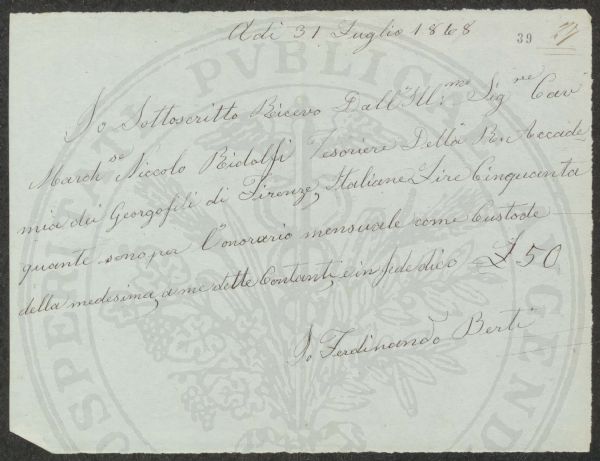 Adi 31 Luglio 1868
39
Io Sottoscritto Ricevo Dall'Ill.mo Sig.re Cav
March.se Niccolo Ridolfi Tesoriere Della R. Accade
mia dei Georgofili di Firenze, Italiane Lire Cinquanta
quante sono per l'onorario mensuale come Custode
della medesima, a me dette Contanti, e in fede dico £ 50
Io Ferdinando Berti
PROSPERITÀ PUBLICA